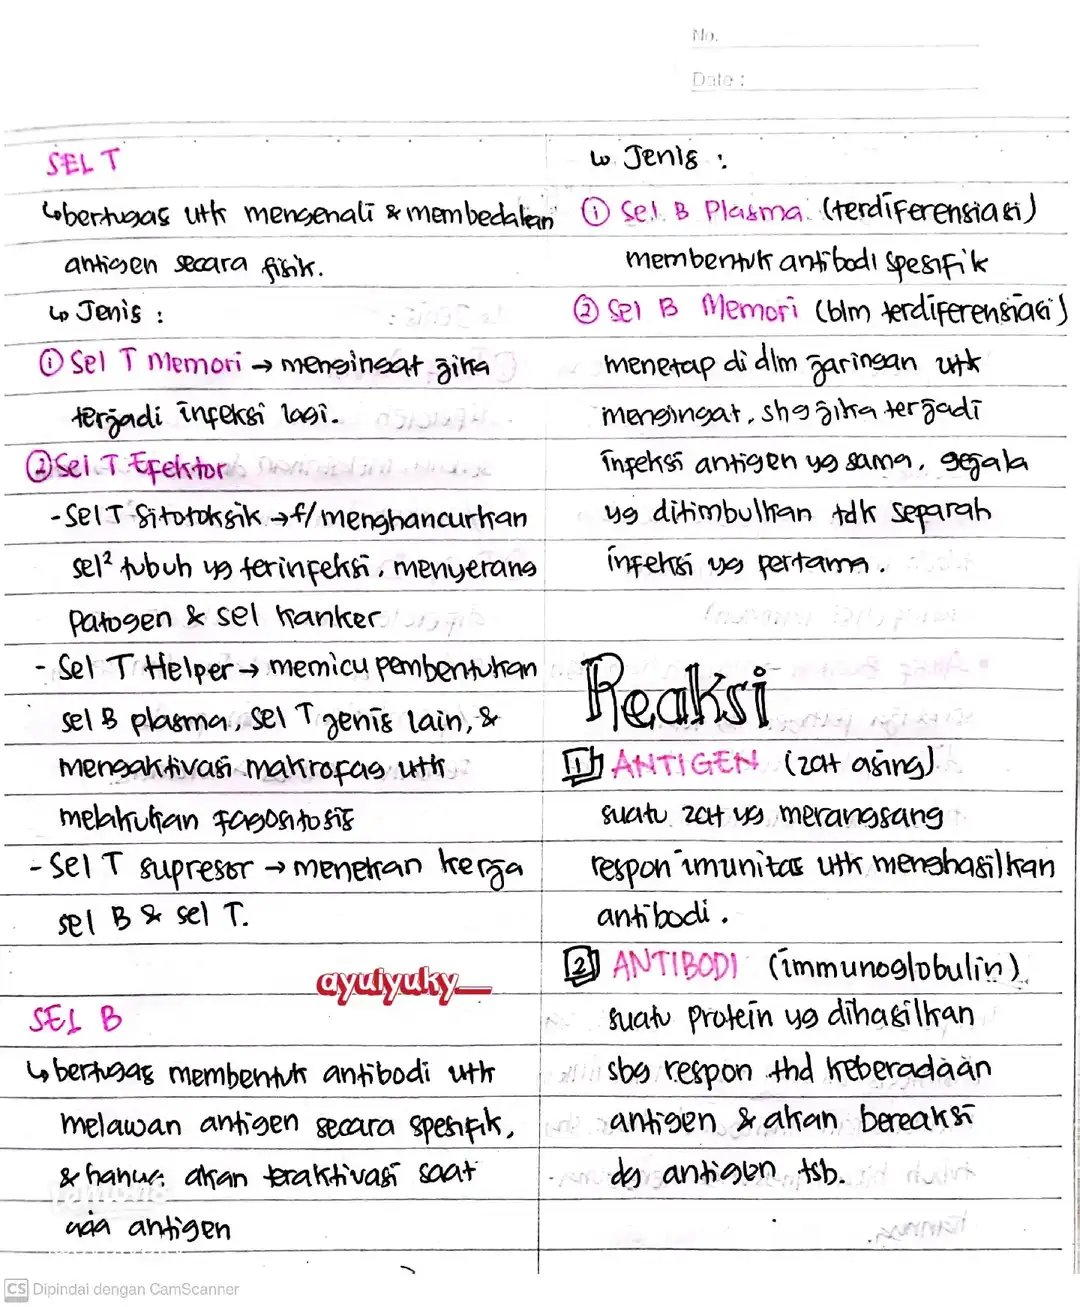 No.
Date :
SEL T
↳ bertugas utk mengenali & membedakan
antigen secara fisik.
↳ Jenis :
① Sel T Memori → mengingat jika
terjadi infeksi lagi.
② Sel T Efektor
- Sel T Sitotoksik → f/ menghancurkan
sel² tubuh yg terinfeksi, menyerang
patogen & sel kanker
- Sel T Helper → memicu pembentukan
sel B plasma, sel T jenis lain, &
mengaktivasi makrofag utk
melakukan fagositosis
- Sel T supresor → menekan kerja
sel B & sel T.
ayuiyuky__
SEL B
↳ bertugas membentuk antibodi utk
melawan antigen secara spesifik,
& hanya akan teraktivasi saat
ada antigen
↳ Jenis :
① Sel B Plasma (terdiferensiasi)
membentuk antibodi spesifik
② Sel B Memori (blm terdiferensiasi)
menetap di dlm jaringan utk
mengingat, shg jika terjadi
infeksi antigen yg sama, gejala
yg ditimbulkan tdk separah
infeksi yg pertama.
Reaksi
1 ANTIGEN (zat asing)
suatu zat yg merangsang
respon imunitas utk menghasilkan
antibodi.
2 ANTIBODI (immunoglobulin)
suatu protein yg dihasilkan
sbg respon thd keberadaan
antigen & akan bereaksi
dg antigen tsb.
CS Dipindai dengan CamScanner